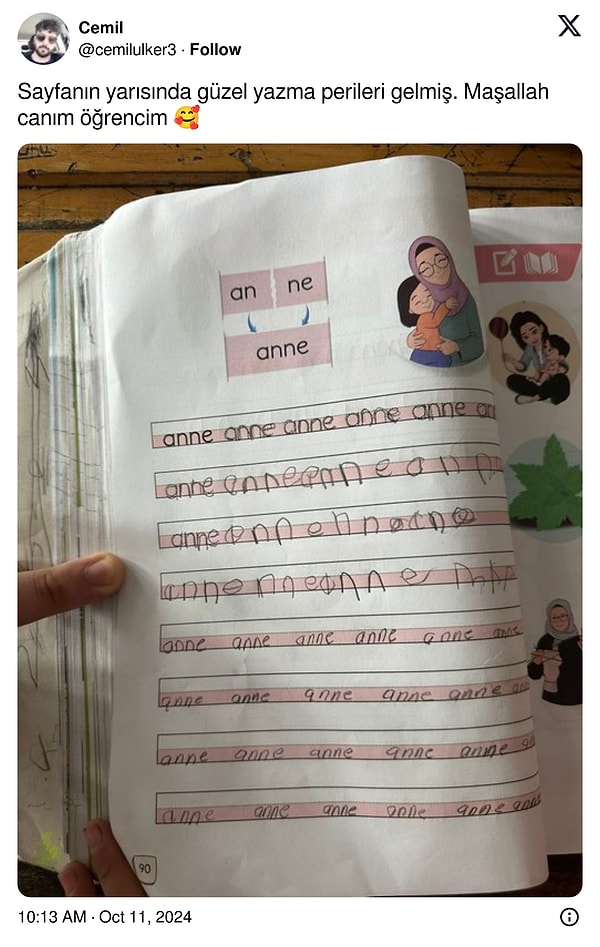 Cemil
@cemilulker3 · Follow
Sayfanın yarısında güzel yazma perileri gelmiş. Maşallah
canım öğrencim 🥰
an ne
anne
anne anne anne anne anne an
anne anneanne ann
anne anne
anne anne
anne anne anne anne anne anne
anne anne anne anne anne an
anne anne anne anne anne an
anne anne anne anne anne anne
90
10:13 AM · Oct 11, 2024